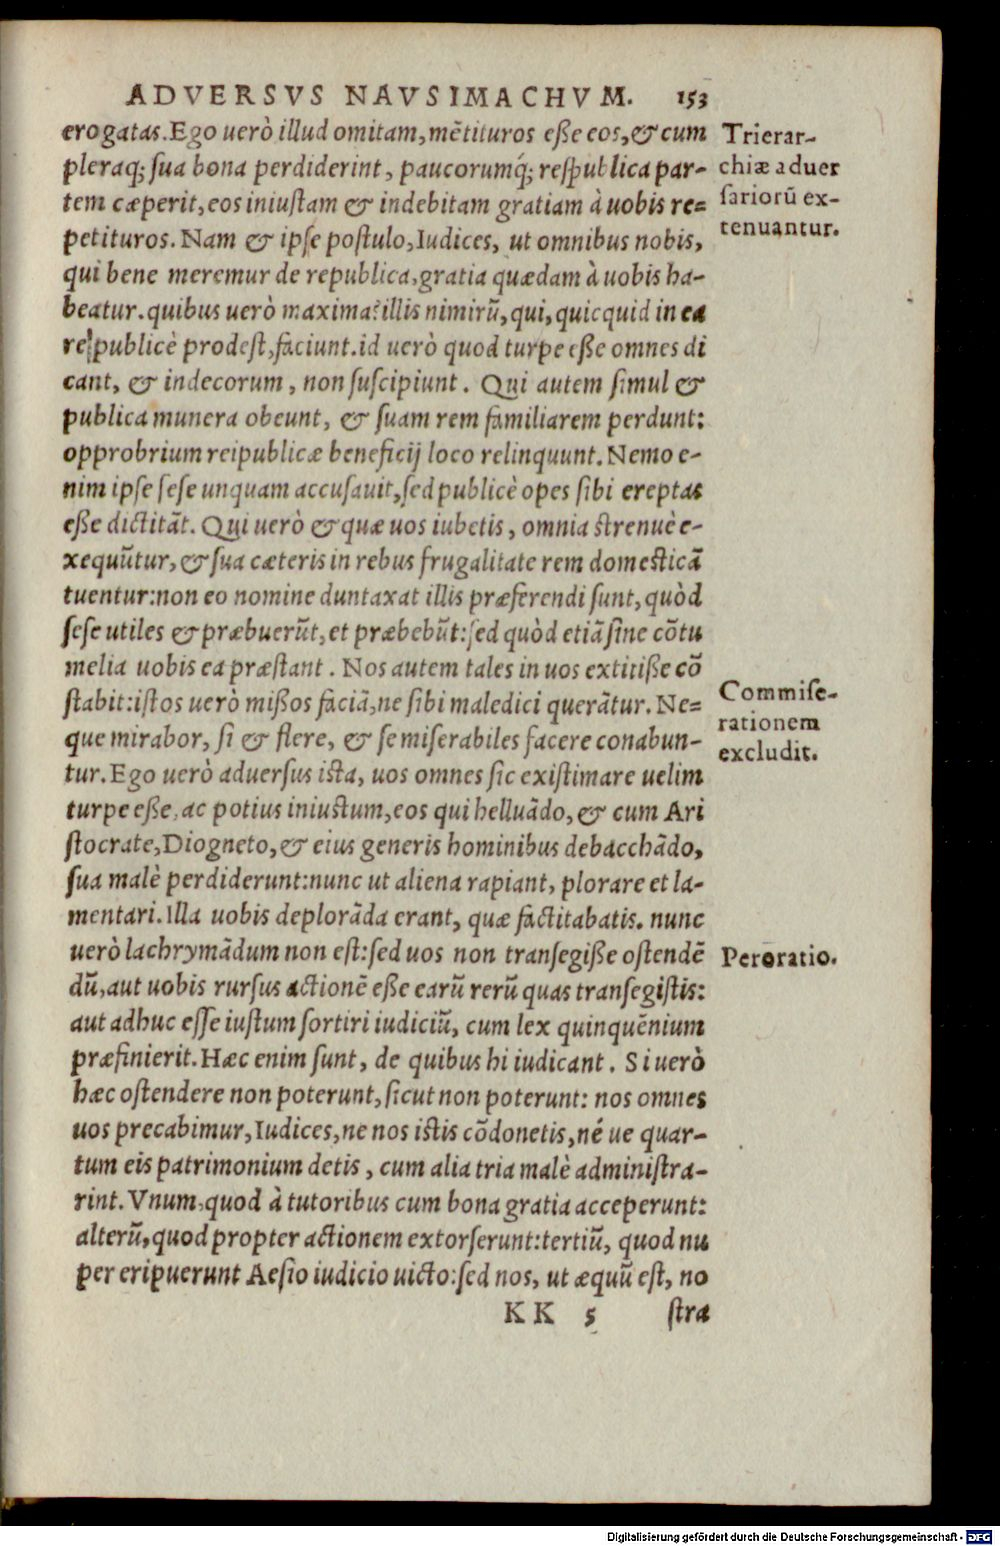 ADVERSVS NAVSIMACHVM. 153
erogatas. Ego uerò illud omitam, mẽtituros eſſe eos, & cum
pleraq; ſua bona perdiderint, paucorumq́; reſpublica par-
tem cæperit, eos iniuſtam & indebitam gratiam à uobis re=
petituros. Nam & ipſe poſtulo, Iudices, ut omnibus nobis,
qui bene meremur de republica, gratia quædam à uobis ha-
beatur. quibus uerò maxima? illis nimirũ, qui, quicquid in ea
re publicè prodeſt, faciunt. id uerò quod turpe eſſe omnes di
cant, & indecorum, non ſuſcipiunt. Qui autem ſimul &
publica munera obeunt, & ſuam rem familiarem perdunt:
opprobrium reipublicæ beneficij loco relinquunt. Nemo e-
nim ipſe ſeſe unquam accuſauit, ſed publicè opes ſibi ereptas
eſſe dictitãt. Qui uerò & quæ uos iubetis, omnia ſtrenuè e-
xequũtur, & ſua cæteris in rebus frugalitate rem domeſticã
tuentur: non eo nomine duntaxat illis præferendi ſunt, quòd
ſeſe utiles & præbuerũt, et præbebũt: ſed quòd etiã ſine cõtu
melia uobis ea præſtant. Nos autem tales in uos extitiſſe cõ
ſtabit: iſtos uerò miſſos faciã, ne ſibi maledici querãtur. Ne=
que mirabor, ſi & flere, & ſe miſerabiles facere conabun-
tur. Ego uerò aduerſus iſta, uos omnes ſic exiſtimare uelim
turpe eſſe, ac potius iniuſtum, eos qui helluãdo, & cum Ari
ſtocrate, Diogneto, & eius generis hominibus debacchãdo,
ſua malè perdiderunt: nunc ut aliena rapiant, plorare et la-
mentari. Illa uobis deplorãda erant, quæ factitabatis. nunc
uerò lachrymãdum non eſt: ſed uos non tranſegiſſe oſtendẽ
dũ, aut uobis rurſus actionẽ eſſe earũ rerũ quas tranſegiſtis:
aut adhuc eſſe iuſtum ſortiri iudiciũ, cum lex quinquẽnium
præfinierit. Hæc enim ſunt, de quibus hi iudicant. Si uerò
hæc oſtendere non poterunt, ſicut non poterunt: nos omnes
uos precabimur, Iudices, ne nos iſtis cõdonetis, né ue quar-
tum eis patrimonium detis, cum alia tria malè adminiſtra-
rint. Vnum, quod à tutoribus cum bona gratia acceperunt:
alterũ, quod propter actionem extorſerunt: tertiũ, quod nu
per eripuerunt Aeſio iudicio uicto: ſed nos, ut æquũ eſt, no
KK 5 ſtra
Trierar-
chiæ aduer
ſariorũ ex-
tenuantur.
Commiſe-
rationem
excludit.
Peroratio.
Digitalisierung gefördert durch die Deutsche Forschungsgemeinschaft - DFG